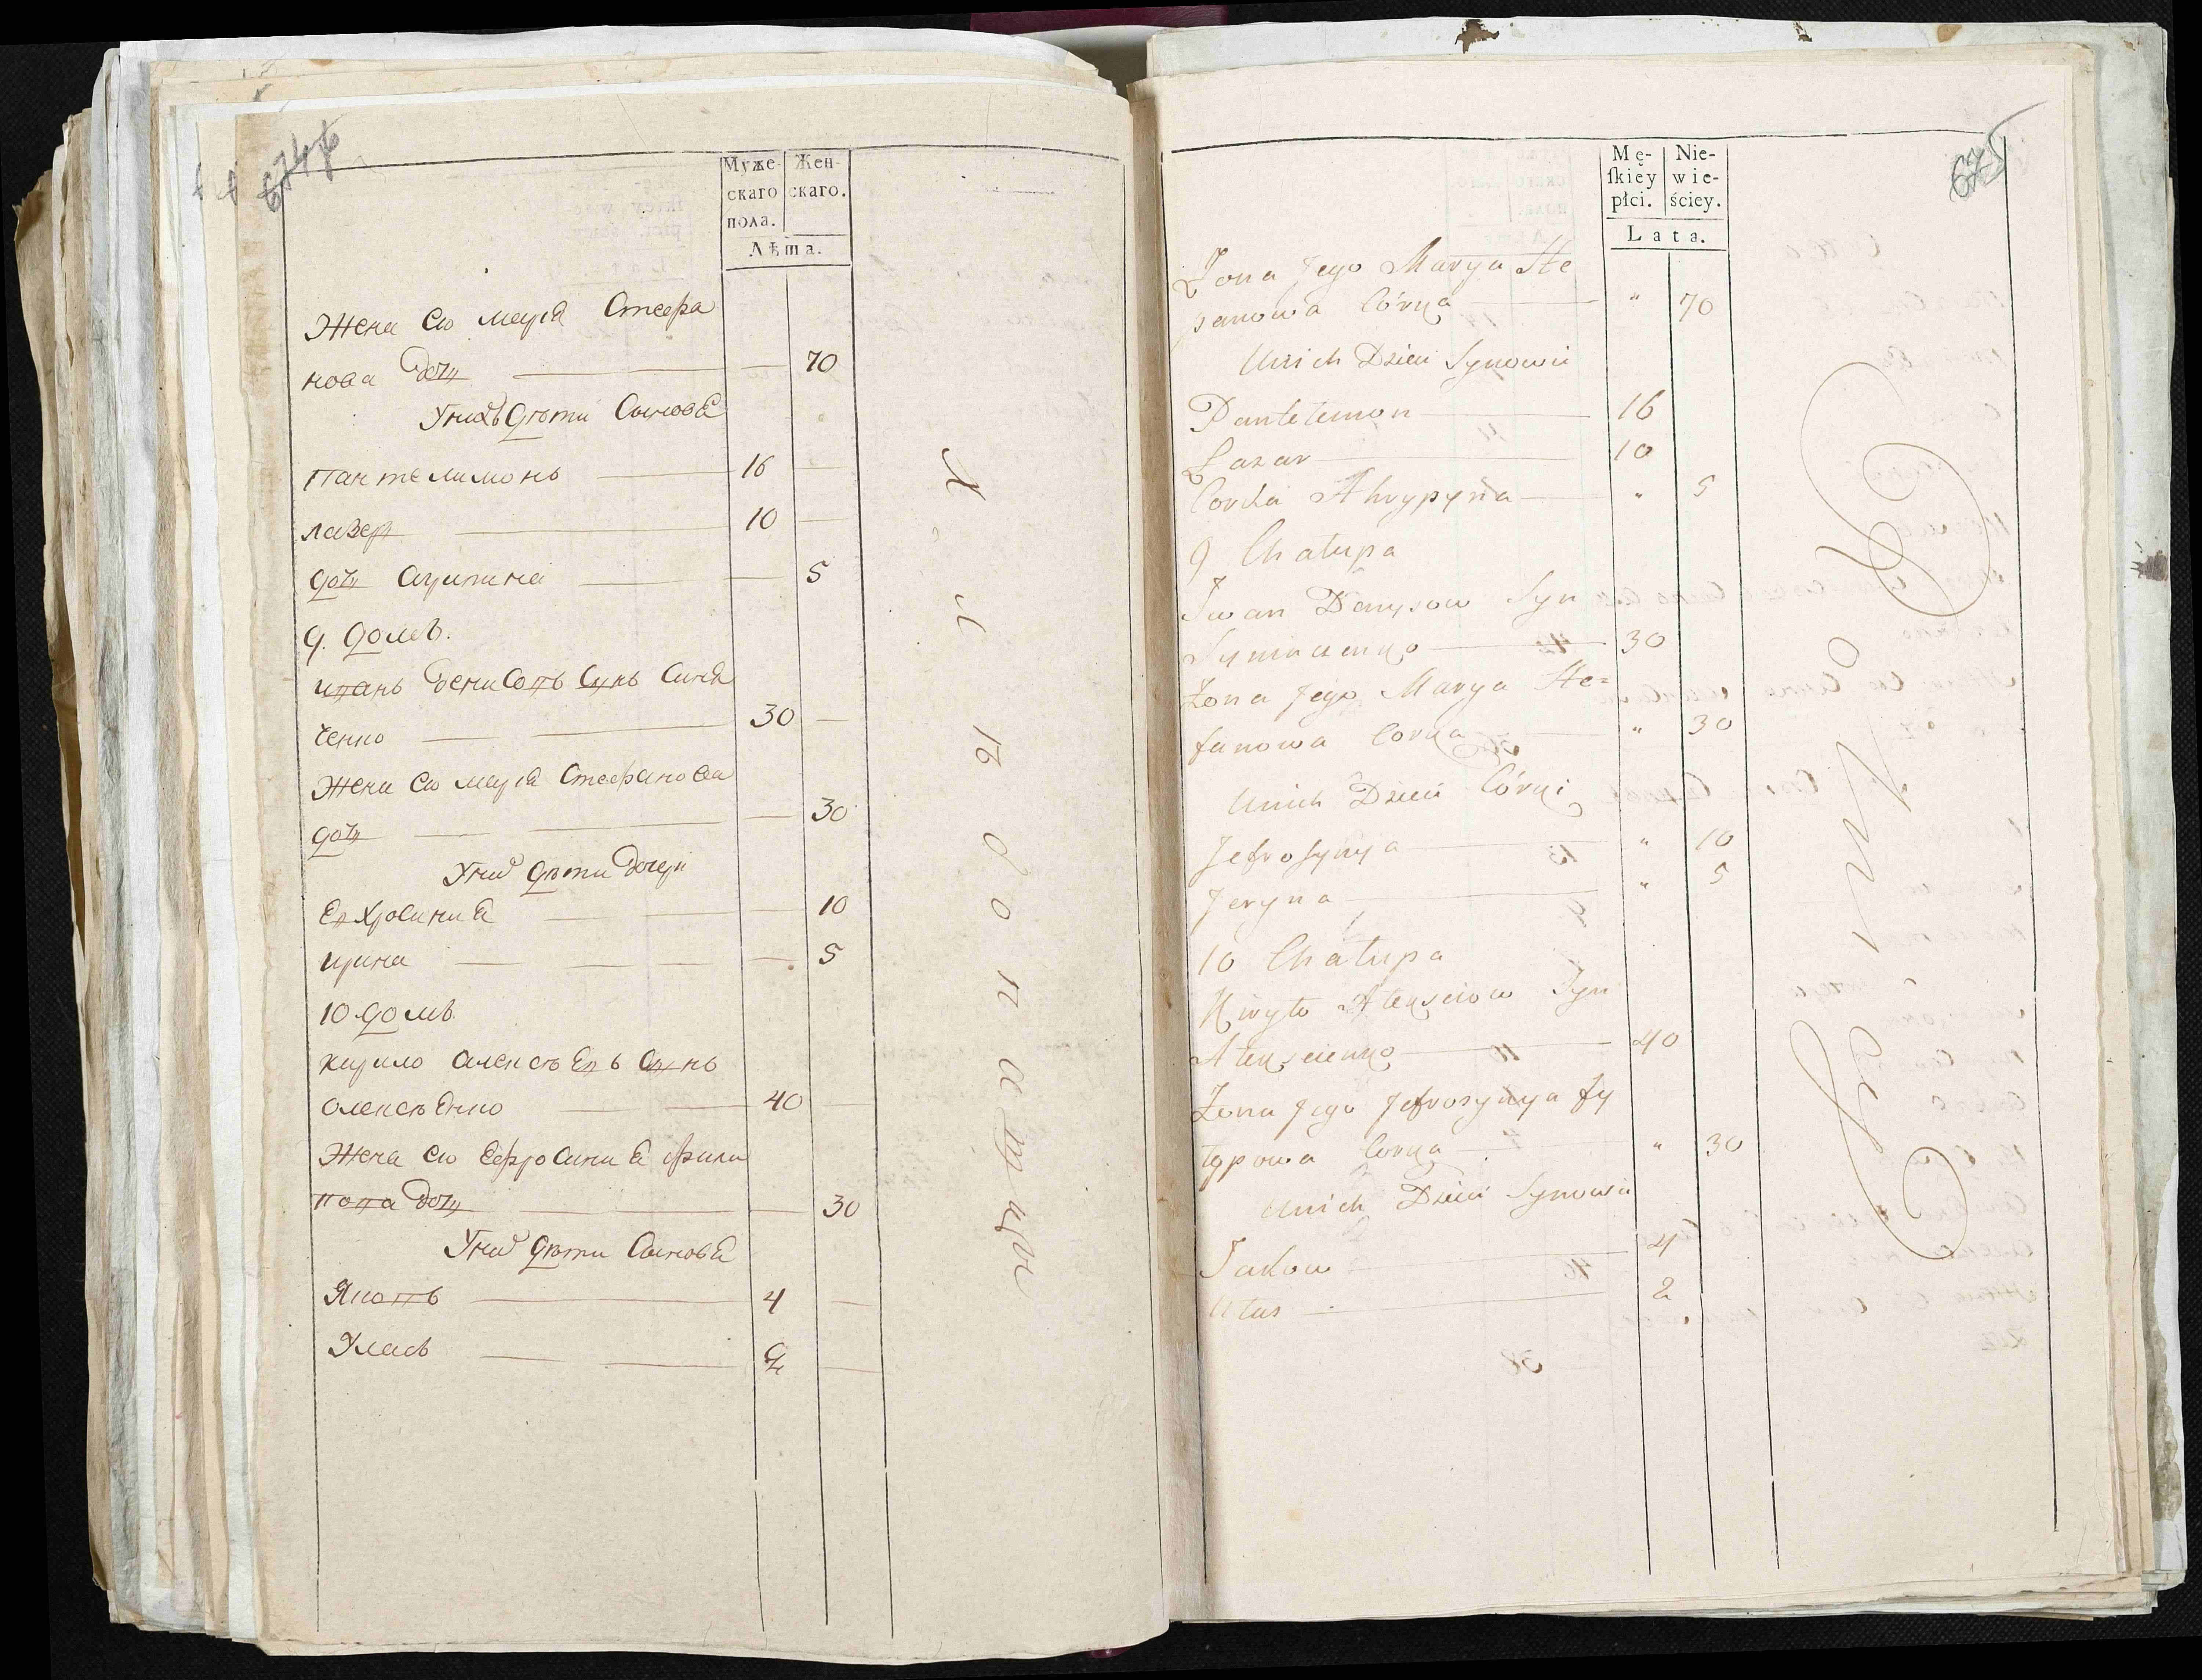 Муже-
скаго
пола.
Жен-
скаго.
Лѣта.
Жена Его Марія Стефа
нова дочь — 70
У нихъ дѣти Сыновья
Пантелимонъ — 16 —
Лазеръ — 10 —
дочь Агрипина — 5
9. домъ.
Иванъ денисовъ Сынъ Симя
ченко — 30 —
Жена Его Марія Стефанова
дочь — 30
У них дѣти дочери
Евхросиния — 10
Ирина — 5
10 домъ
Кирило Алексѣевъ Сынъ
Олексѣенко — 40 —
Жена Его Ефросиния Фили
пова дочь — 30
У них дѣти Сыновья
Яковъ — 4 —
Уласъ — 2 —
Хлѣбопашцы
675
Mę-
ſkiey
płci.
Nie-
wie-
ściey.
Lata.
Żona Jego Marya Ste
panowa Córka — " 70
U nich Dzieci Synowie
Pantelemon — 16
Łazar — 10
Corka Ahrypyna — " 5
9 Chałupa
Iwan Denysow Syn
Symiaczenko — 30
Żona Jego Marya Ste=
fanowa Corka — " 30
U nich Dzieci Córki
Jefrosynya — " 10
Jeryna — " 5
10 Chałupa
Kiryło Alexeiow Syn
Alexeienko — 40
Żona Jego Jefrosynya Fy
łypowa Corka — " 30
U nich Dzieci Synowie
Jakow — 4
Ułas — 2